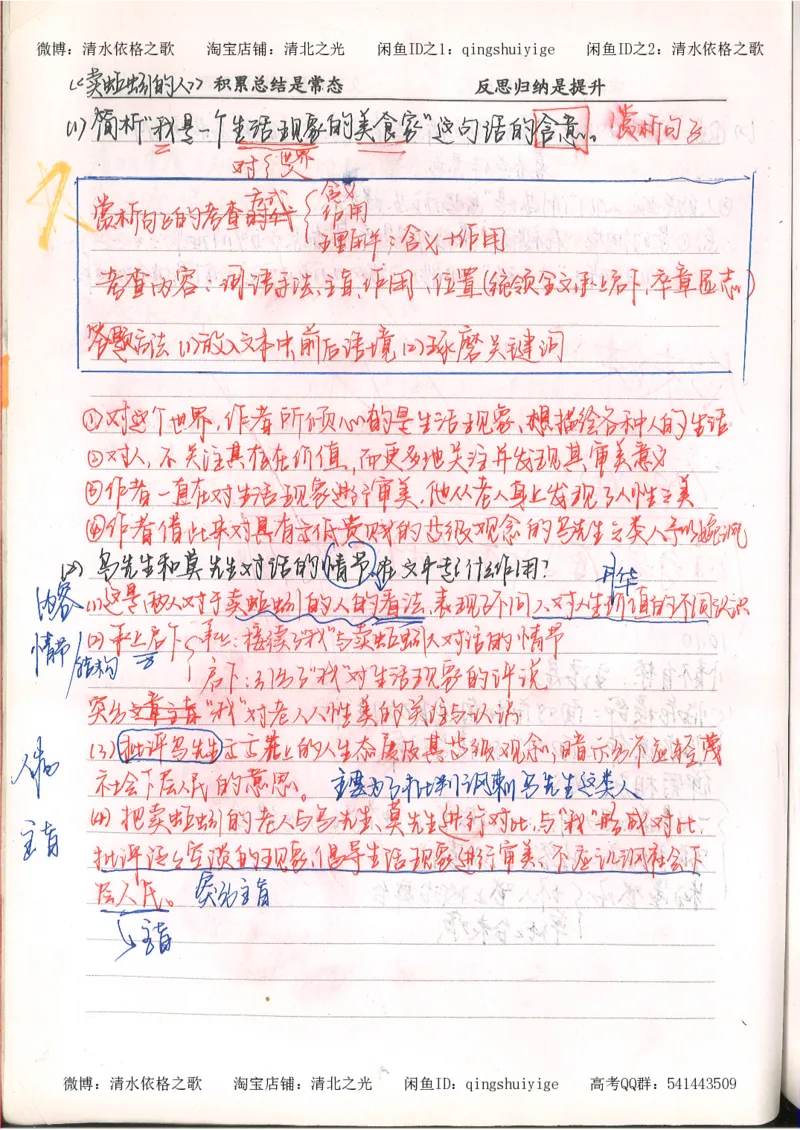 微博：清水依格之歌 淘宝店铺：清北之光 闲鱼ID之1：qingshuiyige 闲鱼ID之2：清水依格之歌
《卖蚯蚓的人》 积累总结是常态 反思归纳是提升
(1) 简析"我是一个生活现象的美食家"这句话的含意。 赏析句子
对 世界 人
赏析句子的考查方式 含义
作用
理解：含义+作用
考查内容：词语手法、主旨、作用、位置(统领全文承上启下,卒章显志)
答题方法 (1)放入文本中前后语境 (2)琢磨关键词
①对这个世界，作者所倾心的是生活现象，想描绘各种人的生活
②对人，不关注其存在价值，而更多地关注并发现其审美意义
③作者一直在对生活现象进行审美，他从老人身上发现了人性之美
④作者借此来对具有高低贵贱的等级观念的乌先生之类人予以嘲讽
(2) 乌先生和莫先生对话的情节在文中起什么作用？
内容 (1)这是两人对于卖蚯蚓的人的看法，表现了不同人对人生价值的不同认识
升华
情节/结构 (2)承上启下 承上：接续了"我"与卖蚯蚓人对话的情节
启下：引出了"我"对生活现象的评说
突出"我"对老人人性美的关注与认识
(3) 批评乌先生高高在上的人生态度及其等级观念，暗示了不应轻蔑
人物
社会下层人民的意思。 主要为了批判讽刺乌先生这类人
主旨
(4) 把卖蚯蚓的老人与乌先生、莫先生进行对比，与"我"形成对比，
批评高谈的现象，倡导生活现象进行审美，不应讥讽社会下
层人民。 突出主旨
主旨
微博：清水依格之歌 淘宝店铺：清北之光 闲鱼ID：qingshuiyige 高考QQ群：541443509